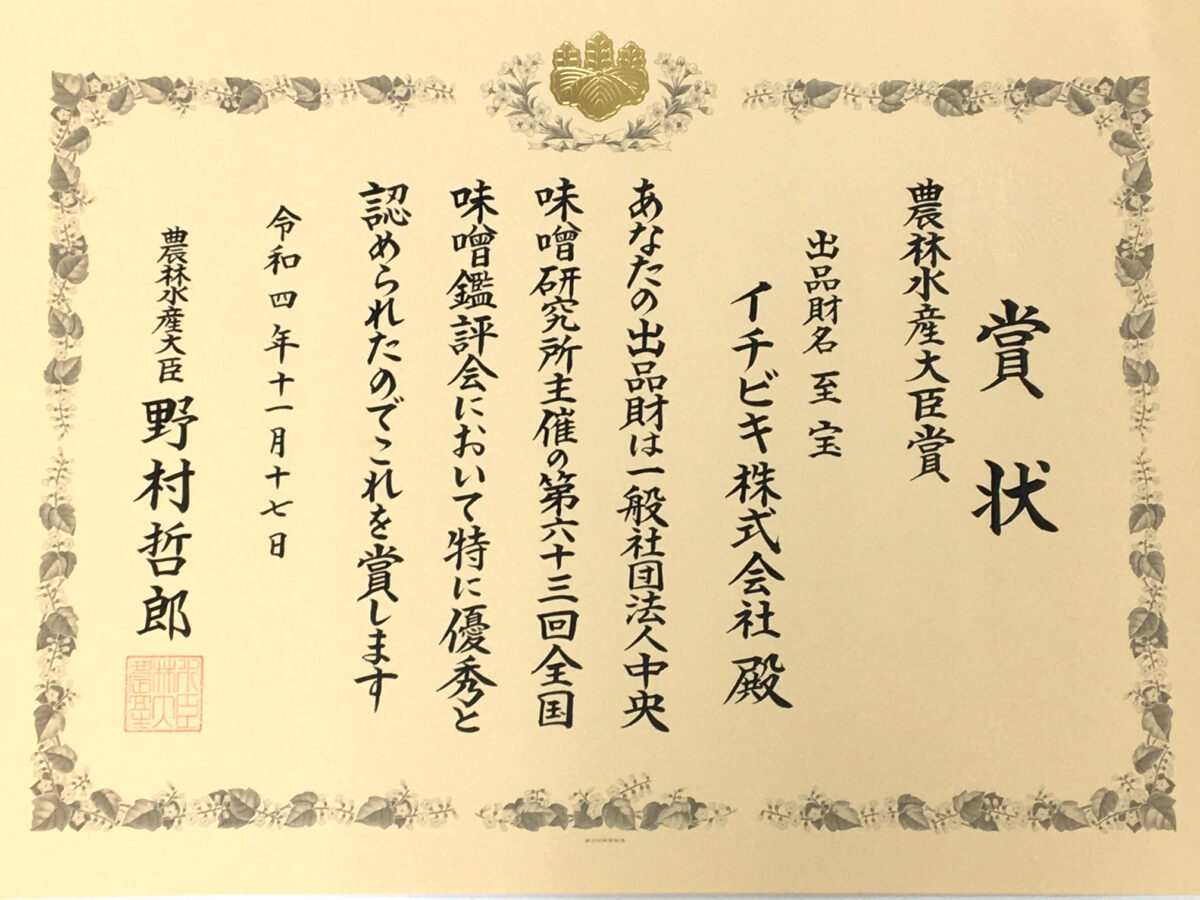 賞状
農林水産大臣賞
出品財名 至宝
イチビキ株式会社 殿
あなたの出品財は一般社団法人中央
味噌研究所主催の第六十三回全国
味噌鑑評会において特に優秀と
認められたのでこれを賞します
令和四年十一月十七日
農林水産大臣 野村哲郎